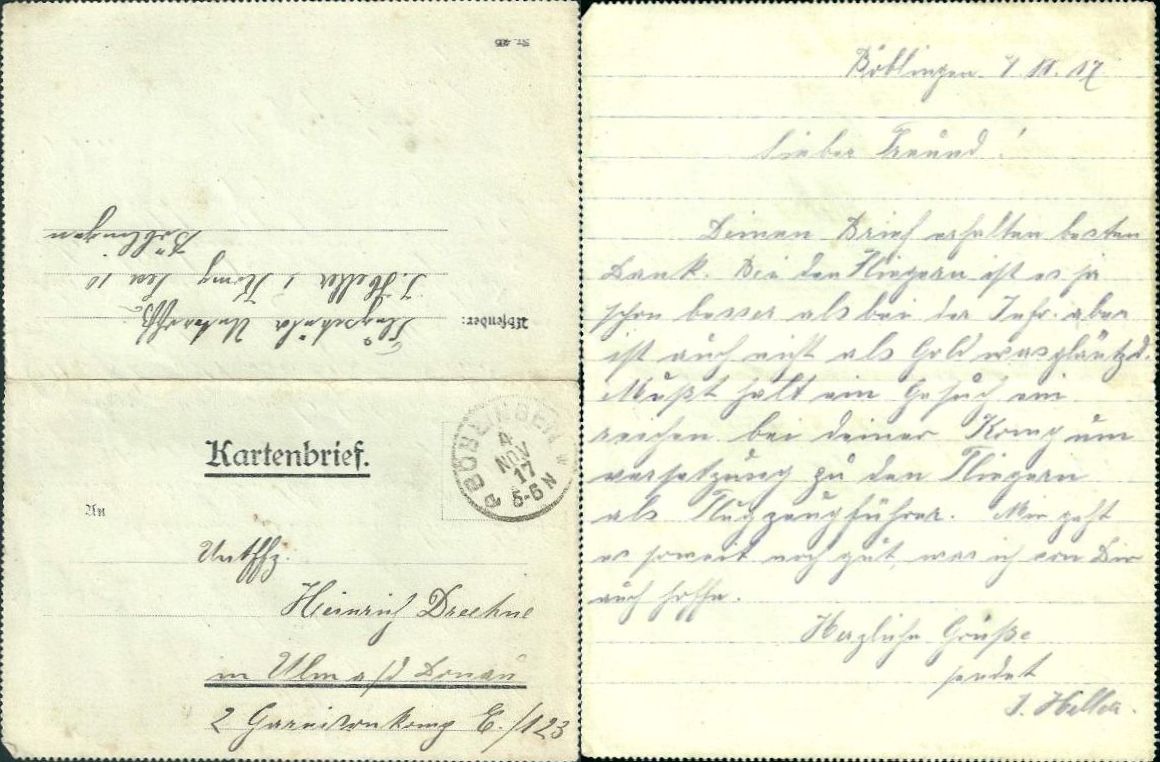 Nr. 45
Absender: Flugschüler Untoffz.
J. Heller 1 Komp Fea 10
Böblingen
Kartenbrief.
BÖBLINGEN
4
NOV
17
5-6 N
An
Untffz.
Heinrich
in Ulm a/d Donau
2 Garnisonkomp E./123
Böblingen 4.11.17
Lieber Freund!
Deinen Brief erhalten besten
Dank. Bei den Fliegern ist es ja
schon besser als bei der Infr. aber
ist auch nicht als Gold was gläntzd.
Mußt halt ein Gesuch ein
reichen bei deiner Komp um
versetzung zu den Fliegern
als Flugzeugführer. Mir geht
es soweit noch gut, was ich von Dir
auch hoffe.
Herzliche Grüße
sendet
J. Heller.